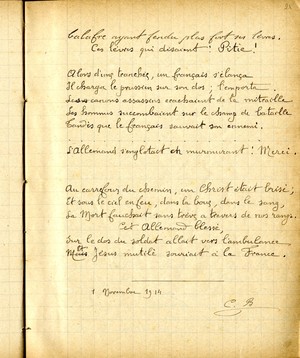 Calafre ayant fendu plus fort ses lèvres
Ces lèvres qui disaient : Pitié !
Alors d'une tranchée, un français s'élança
Il chargea le poussin sur son dos ; l'emporta
Les canons assassins crachaient de la mitraille
Les hommes succombaient sur le champ de bataille
Tandis que le français sauvait son ennemi.
L'Allemand sanglotait en murmurant : Merci.
Au carrefour du chemin, un Christ était brisé ;
Et sous le ciel en feu, dans la boue, dans le sang,
La Mort fauchait sans trêve à travers de nos rangs.
Cet Allemand blessé,
Sur le dos du soldat allait vers l'ambulance
Et Jésus mutilé souriait à la France.
1 Novembre 1914
C. B